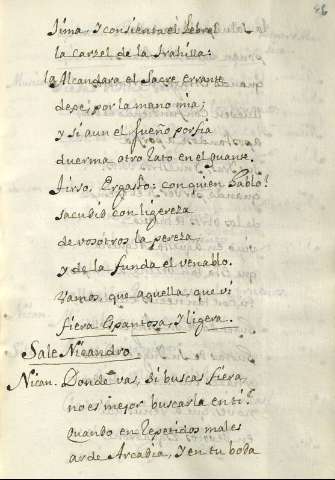 gima, y consienta el Lebrel
la carzel de la trahilla:
la Alcandara el Sacre errante
dexe, por la mano mia;
y si aun el sueño porfia
duerma otro rato en el guante.
Tirso, Ergasto: con quien hablo?
sacudid con ligereza
de vosotros la pereza,
y de la funda el venablo.
Vamos, que aquella, que vi
fiera Espantosa, y ligera.
Sale Nicandro.
Nican. Donde vas, Si buscas fiera,
no es mejor buscarla en ti?
Quando en Repetidos males
arde Arcadia, y en tu boda